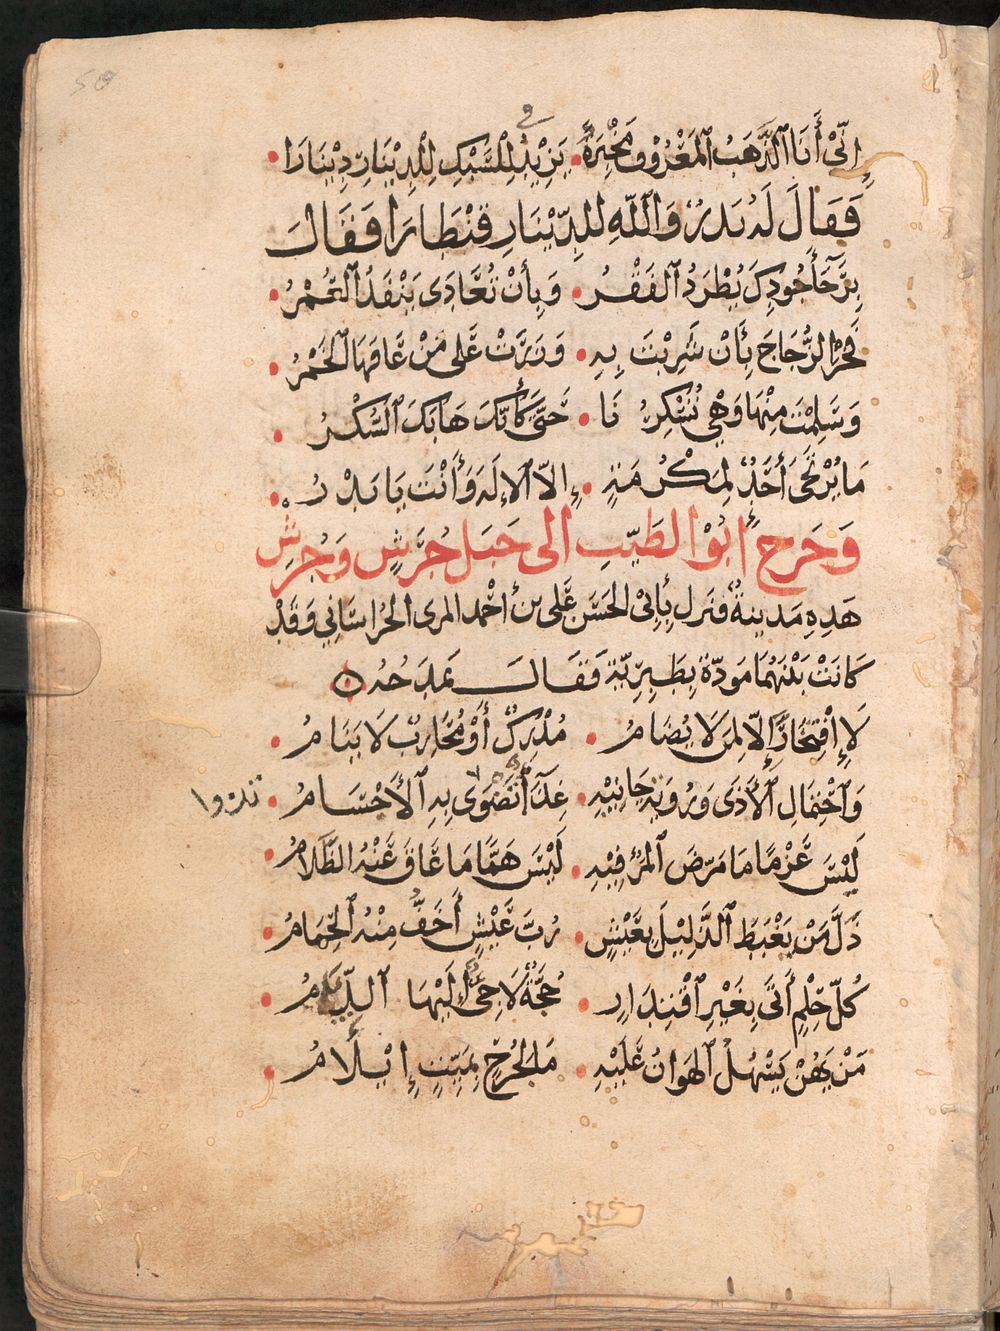 في
إِنِّي أَنَا ٱلذَّهَبُ ٱلْمَعْرُوفُ مَخْبَرَةً • يَزِيدُ لِلسَّبْكِ لِلدِّيْنَارِ دِيْنَارَا •
فَقَالَ لَهُ بَدْرٌ وَٱللّٰهِ لِلدِّيْنَارِ قِنْطَارَا فَقَالَ
بِرَجَآءِ جُودِكَ يُطْرَدُ ٱلْفَقْرُ • وَبِأَنْ تُعَادَى يَنْفَدُ ٱلْعُمْرُ •
فَخْرُ الزُّجَاجِ بِأَنْ شَرِبْتَ بِهِ • وَزَرَتْ عَلَى مَنْ عَافَهَا ٱلْخَمْرُ •
وَسَلِمْتَ مِنْهَا وَهْيَ تُسْكِرُنَا • حَتَّى كَأَنَّكَ هَابَكَ ٱلسُّكْرُ •
مَا يُرْتَجَى أَحَدٌ لِمَكْرُمَةٍ • إِلَّا ٱلْإِلٰهُ وَأَنْتَ يَا بَدْرُ •
وَخَرَجَ أَبُوْ الطَّيِّبِ الى جَبَلِ جُرَشٍ وَجُرَشُ
هَذِهِ مَدِينةٌ فنزل بِأبِى الحَسَن عَلى بن أحْمد المرى الخراسَانِي وَقَدْ
كَانَتْ بَيْنَهُمَا مَودّة بِطَبِرِيّة فَقَالَ يمْدَحُهُ ن
لَا إِفْتِخَارٌ إِلَّا لِمَن لَا يُضَامُ • مُدْرِكٌ أَوْ مُحَارِبٌ لَا يَنَامُ •
وَٱحْتِمَالِ ٱلْأَذَى وَرُوْيَةِ جَانِيْهِ • غِذَآءٌ تَضْوَى بِهِ ٱلْأَجْسَامُ •
لَيْسَ عَزْمًا مَا مَرَّضَ ٱلْمَرْءُ فِيْهِ • لَيْسَ هَمًّا مَا عَاقَ عَنْهُ الظَّلَامُ •
ذَلَّ مَنْ يَغْبِطُ ٱلذَّلِيْلَ بِعَيْشٍ • رُبَّ عَيْشٍ أَخَفُّ مِنْهُ ٱلْحِمَامُ •
كُلُّ حِلْمٍ أَتَى بِغَيْرِ ٱقْتِدَارٍ • حُجَّةٌ لَاجِئٌ إِلَيْهَا ٱللِّئَامُ •
مَنْ يَهُنْ يَسْهُلُ ٱلْهَوَانُ عَلَيْهِ • مَا لِجُرْحٍ بِمَيِّتٍ إِيْلَامُ •